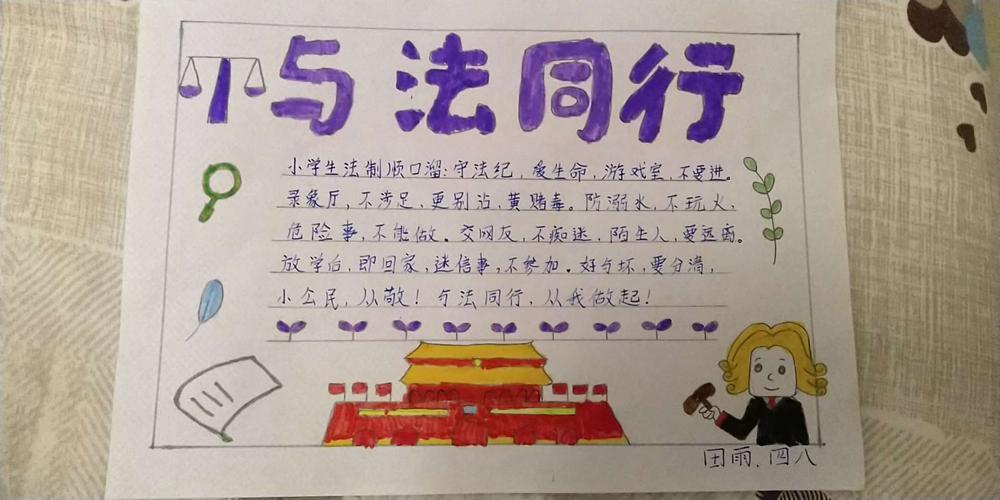 与法同行
小学生法制顺口溜:守法纪,爱生命,游戏室,不要进。
录象厅,不涉足,更别沾,黄赌毒。防溺水,不玩火,
危险事,不能做。交网友,不痴迷,陌生人,要远离。
放学后,即回家,迷信事,不参加。好与坏,要分清,
小公民,从敬!与法同行,从我做起!
田雨.四八